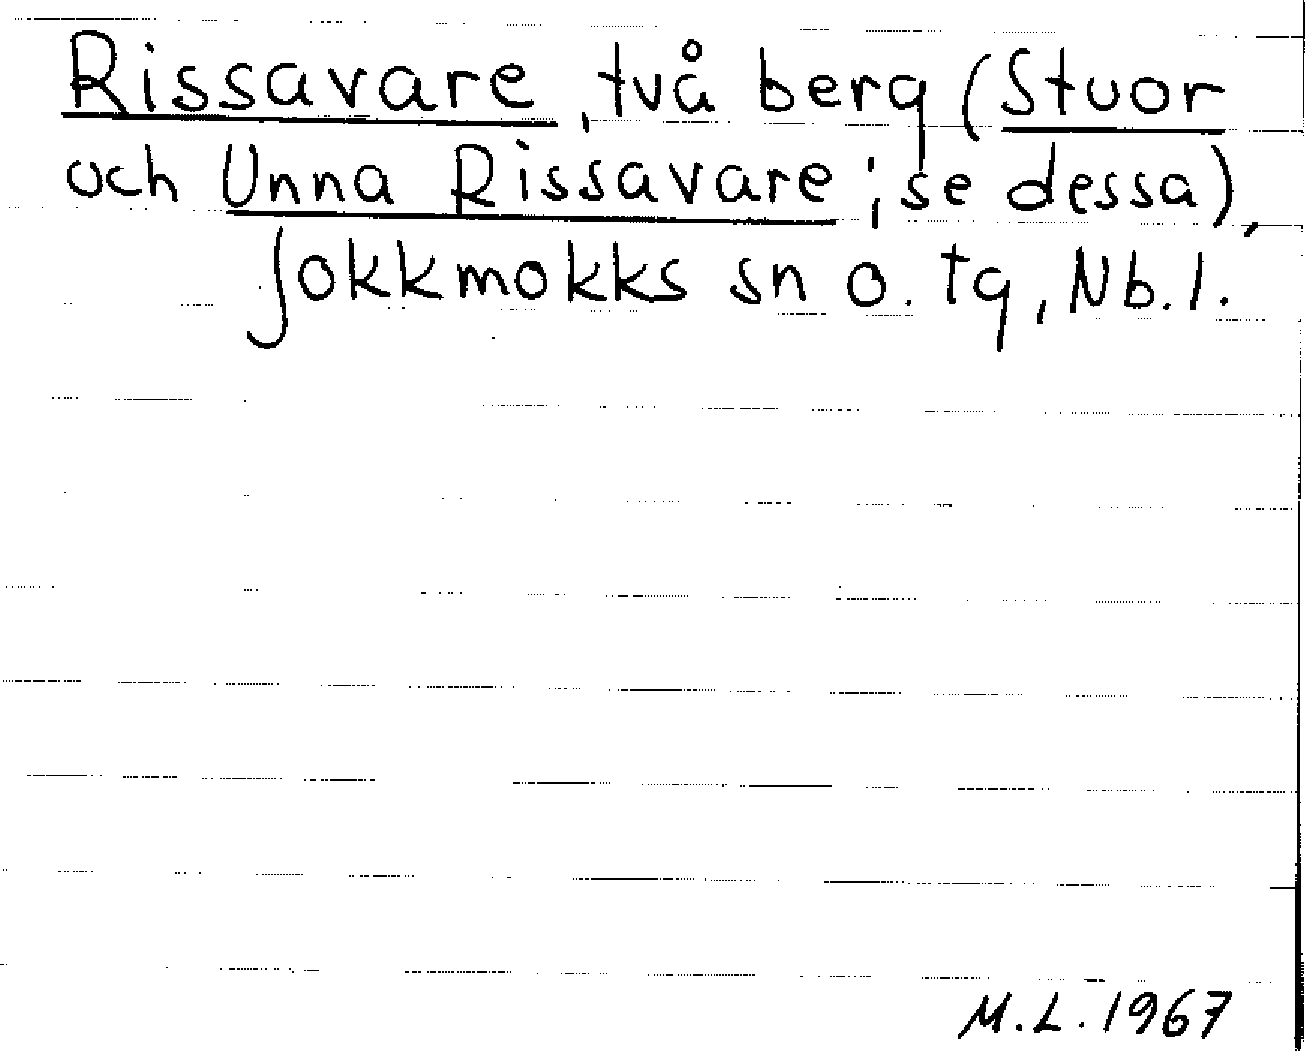 Rissavare, två berg (Stuor
och Unna Rissavare; se dessa),
Jokkmokks sn o. tg, Nb. l.
M.L. 1967